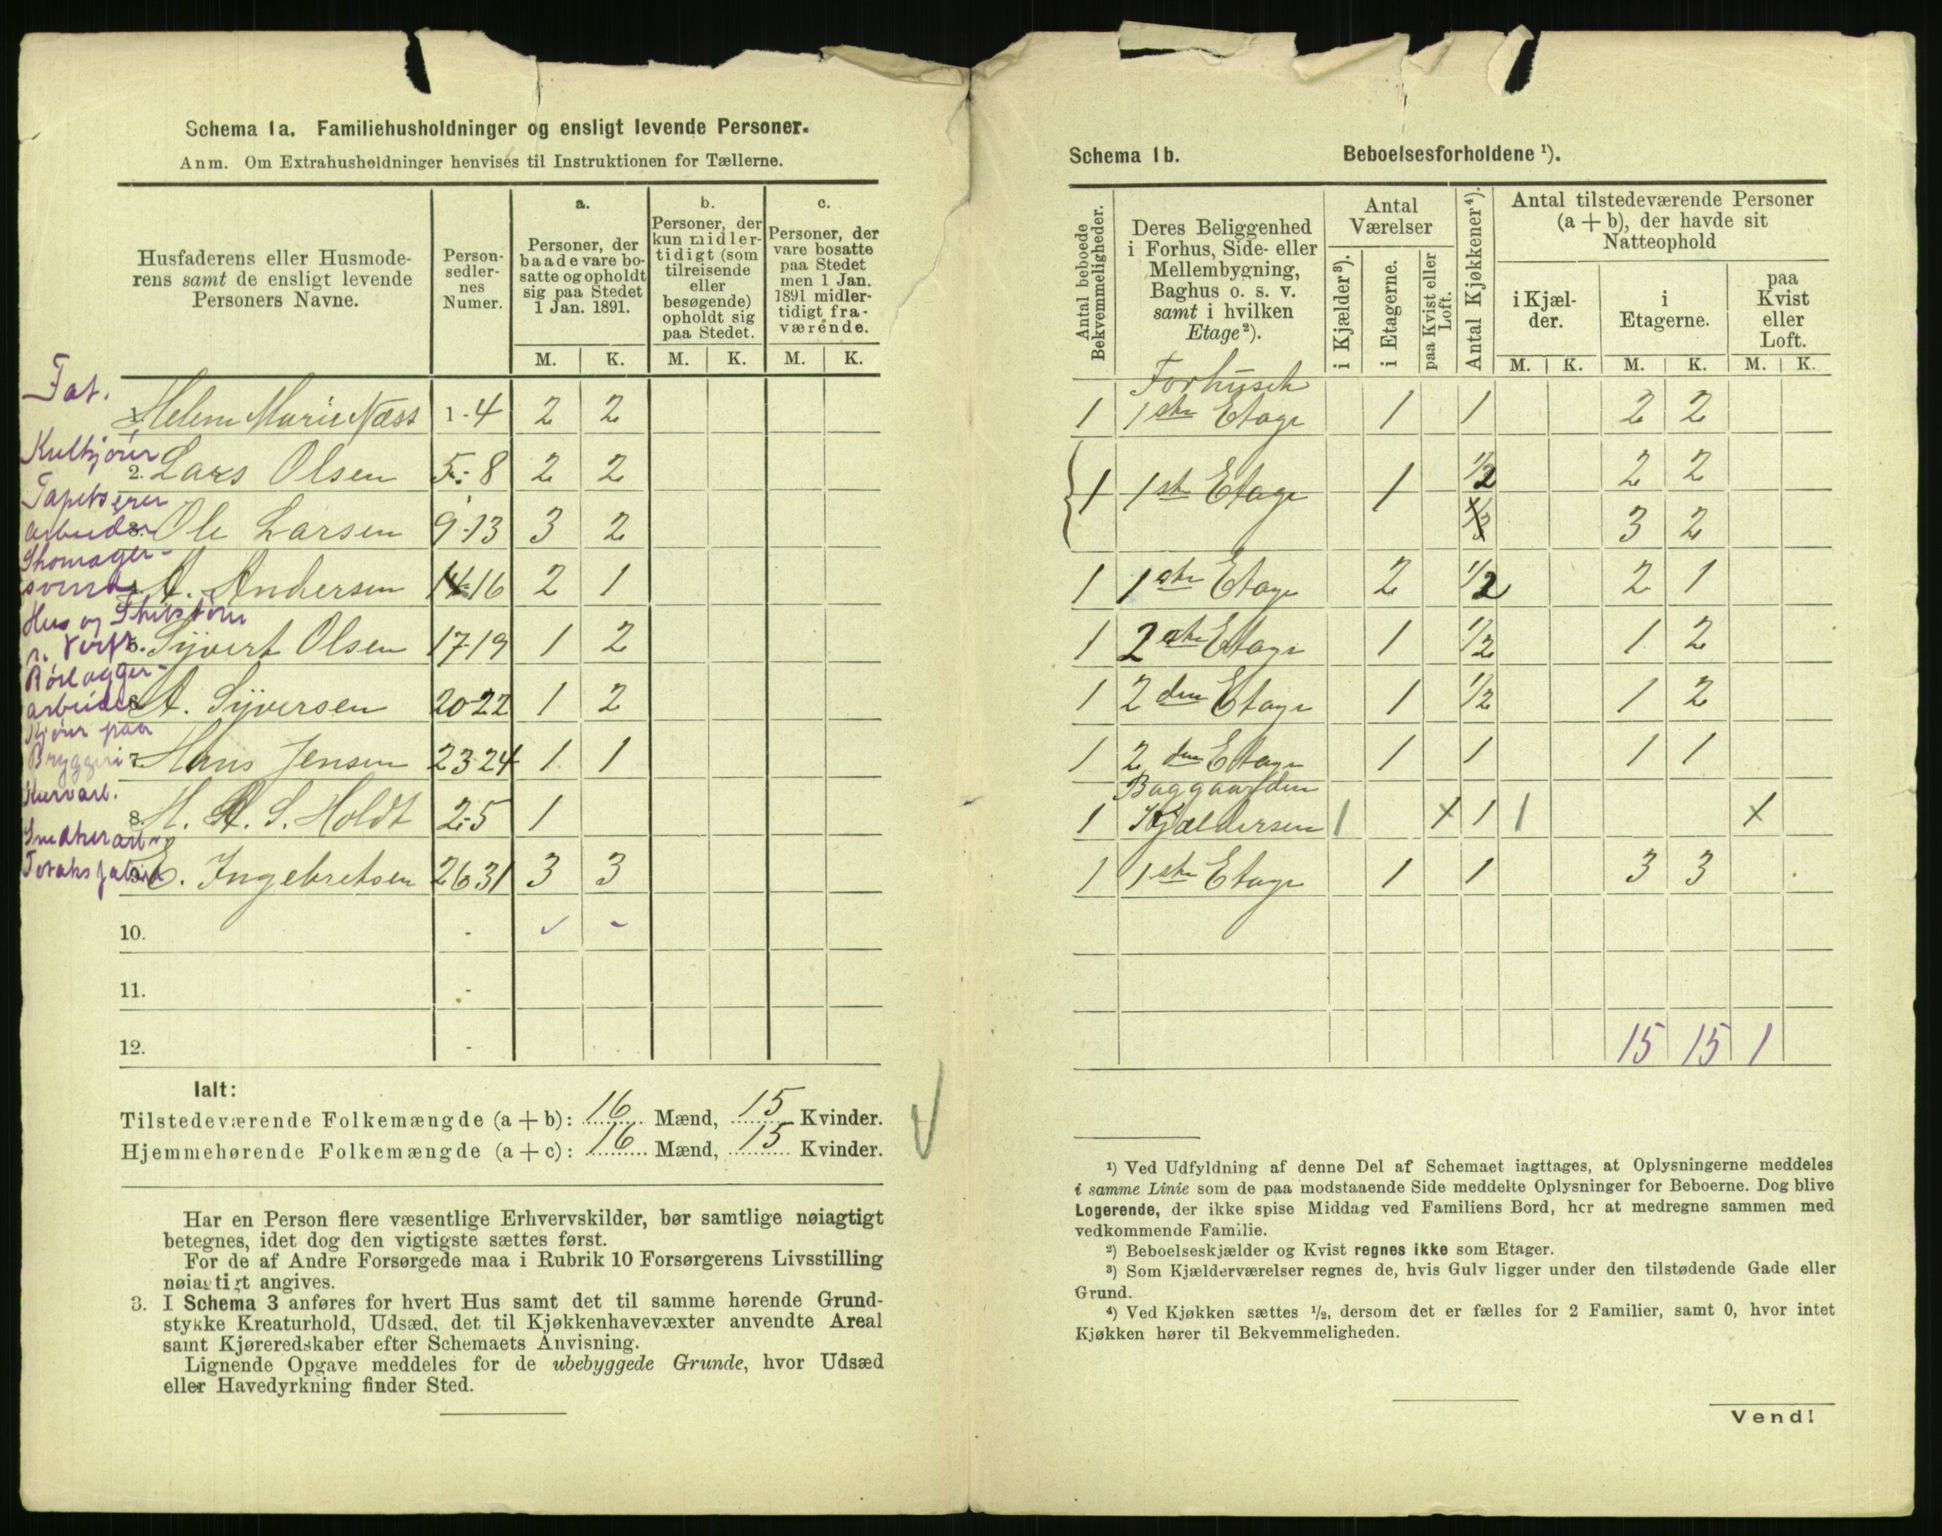 Schema 1a. Familiehusholdninger og ensligt levende Personer.
Anm. Om Extrahusholdninger henvises til Instruktionen for Tællerne.
Husfaderens eller Husmoderens samt de ensligt levende Personers Navne.
Personsedlernes Numer.
a.
Personer, der baade vare bosatte og opholdt sig paa Stedet 1 Jan. 1891.
b.
Personer, der kun midlertidigt (som tilreisende eller besøgende) opholdt sig paa Stedet.
c.
Personer, der vare bosatte paa Stedet men 1 Jan. 1891 midlertidigt fraværende.
M. K. M. K. M. K.
Fat.
Helene Marie Næss 1-4 2 2
Kulkjører
2. Lars Olsen 5-8 2 2
Tapetserer
arbeider
3. Ole Larsen 9-13 3 2
Skomager-
svend
A. Andersen 14-16 2 1
Hus og Skibstøm
r. Verft
5. Syvert Olsen 17-19 1 2
Rørlægger-
arbeider
6. A. Syversen 20-22 1 2
Kjører paa
Bryggeri
7. Hans Jensen 23-24 1 1
Kurvarb.
8. H. A. S. Holdt 25 1
Snedkerarb
Tobaksfabrik
9. E. Ingebretsen 26-31 3 3
10. -
11. -
12. -
Ialt:
Tilstedeværende Folkemængde (a + b): 16 Mænd, 15 Kvinder.
Hjemmehørende Folkemængde (a + c): 16 Mænd, 15 Kvinder.
Har en Person flere væsentlige Erhvervskilder, bør samtlige nøiagtigt
betegnes, idet dog den vigtigste sættes først.
For de af Andre Forsørgede maa i Rubrik 10 Forsørgerens Livsstilling
nøiagtigt angives.
3. I Schema 3 anføres for hvert Hus samt det til samme hørende Grund-
stykke Kreaturhold, Udsæd, det til Kjøkkenhavevæxter anvendte Areal
samt Kjøreredskaber efter Schemaets Anvisning.
Lignende Opgave meddeles for de ubebyggede Grunde, hvor Udsæd
eller Havedyrkning finder Sted.
Schema 1b. Beboelsesforholdene ¹).
Antal beboede Bekvemmeligheder.
Deres Beliggenhed i Forhus, Side- eller Mellembygning, Baghus o. s. v. samt i hvilken Etage ²).
Antal Værelser
i Kjælder ³).
i Etagerne.
paa Kvist eller Loft.
Antal Kjøkkener ⁴).
Antal tilstedeværende Personer (a + b), der havde sit Natteophold
i Kjælder.
i Etagerne.
paa Kvist eller Loft.
M. K. M. K. M. K.
Forhuset
1 1ste Etage 1 1 2 2
1 1ste Etage 1 1/2 2 2
1/2 3 2
1 1ste Etage 2 1/2 2 1
1 2den Etage 1 1/2 1 2
1 2den Etage 1 1/2 1 2
1 2den Etage 1 1 1 1
Baggaarden
1 Kjælderen 1 x 1 1 x
1 1ste Etage 1 1 3 3
15 15 1
¹) Ved Udfyldning af denne Del af Schemaet iagttages, at Oplysningerne meddeles
i samme Linie som de paa modstaaende Side meddelte Oplysninger for Beboerne. Dog blive
Logerende, der ikke spise Middag ved Familiens Bord, her at medregne sammen med
vedkommende Familie.
²) Beboelseskjælder og Kvist regnes ikke som Etager.
³) Som Kjælderværelser regnes de, hvis Gulv ligger under den tilstødende Gade eller
Grund.
⁴) Ved Kjøkken sættes ¹/₂, dersom det er fælles for 2 Familier, samt 0, hvor intet
Kjøkken hører til Bekvemmeligheden.
Vend!